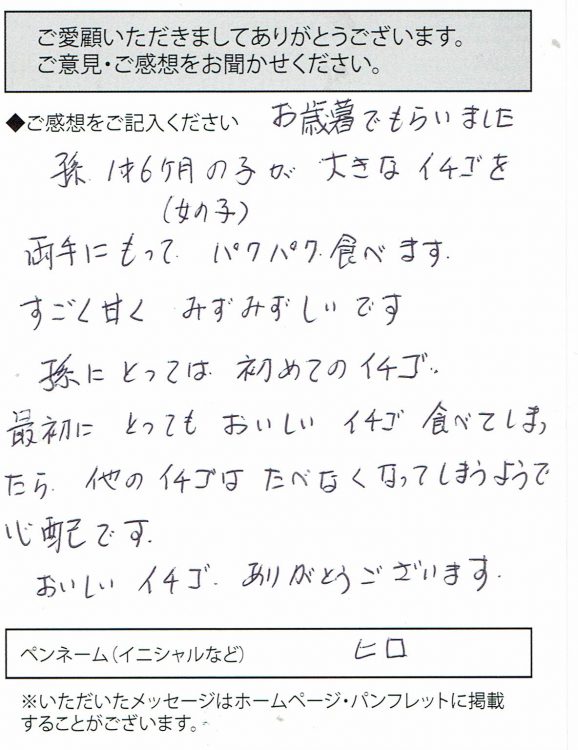 ご愛顧いただきましてありがとうございます。
ご意見・ご感想をお聞かせください。
◆ご感想をご記入ください お歳暮でもらいました
孫 1才6ケ月の子が 大きなイチゴを
(女の子)
両手にもって パクパク食べます.
すごく甘く みずみずしいです
孫にとっては 初めてのイチゴ.
最初に とっても おいしい イチゴ 食べてしまっ
たら 他のイチゴは たべなくなってしまうようで
心配です.
おいしい イチゴ. ありがとうございます.
ペンネーム(イニシャルなど) ヒロ
※いただいたメッセージはホームページ・パンフレットに掲載
することがございます。